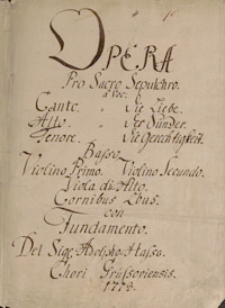 OPERA
Pro Sacro Sepulchro.
a Voc:
Canto. " Die Liebe.
Alto. " Der Sünder.
Tenore. Die Gerechtigkeit.
Basso
Violino Primo. Violino Secundo.
Viola di Alto.
Cornibus Dbus.
con
Fundamento.
Del Sig: Adolpho Hasse.
Chori Grüssoviensis.
1778.